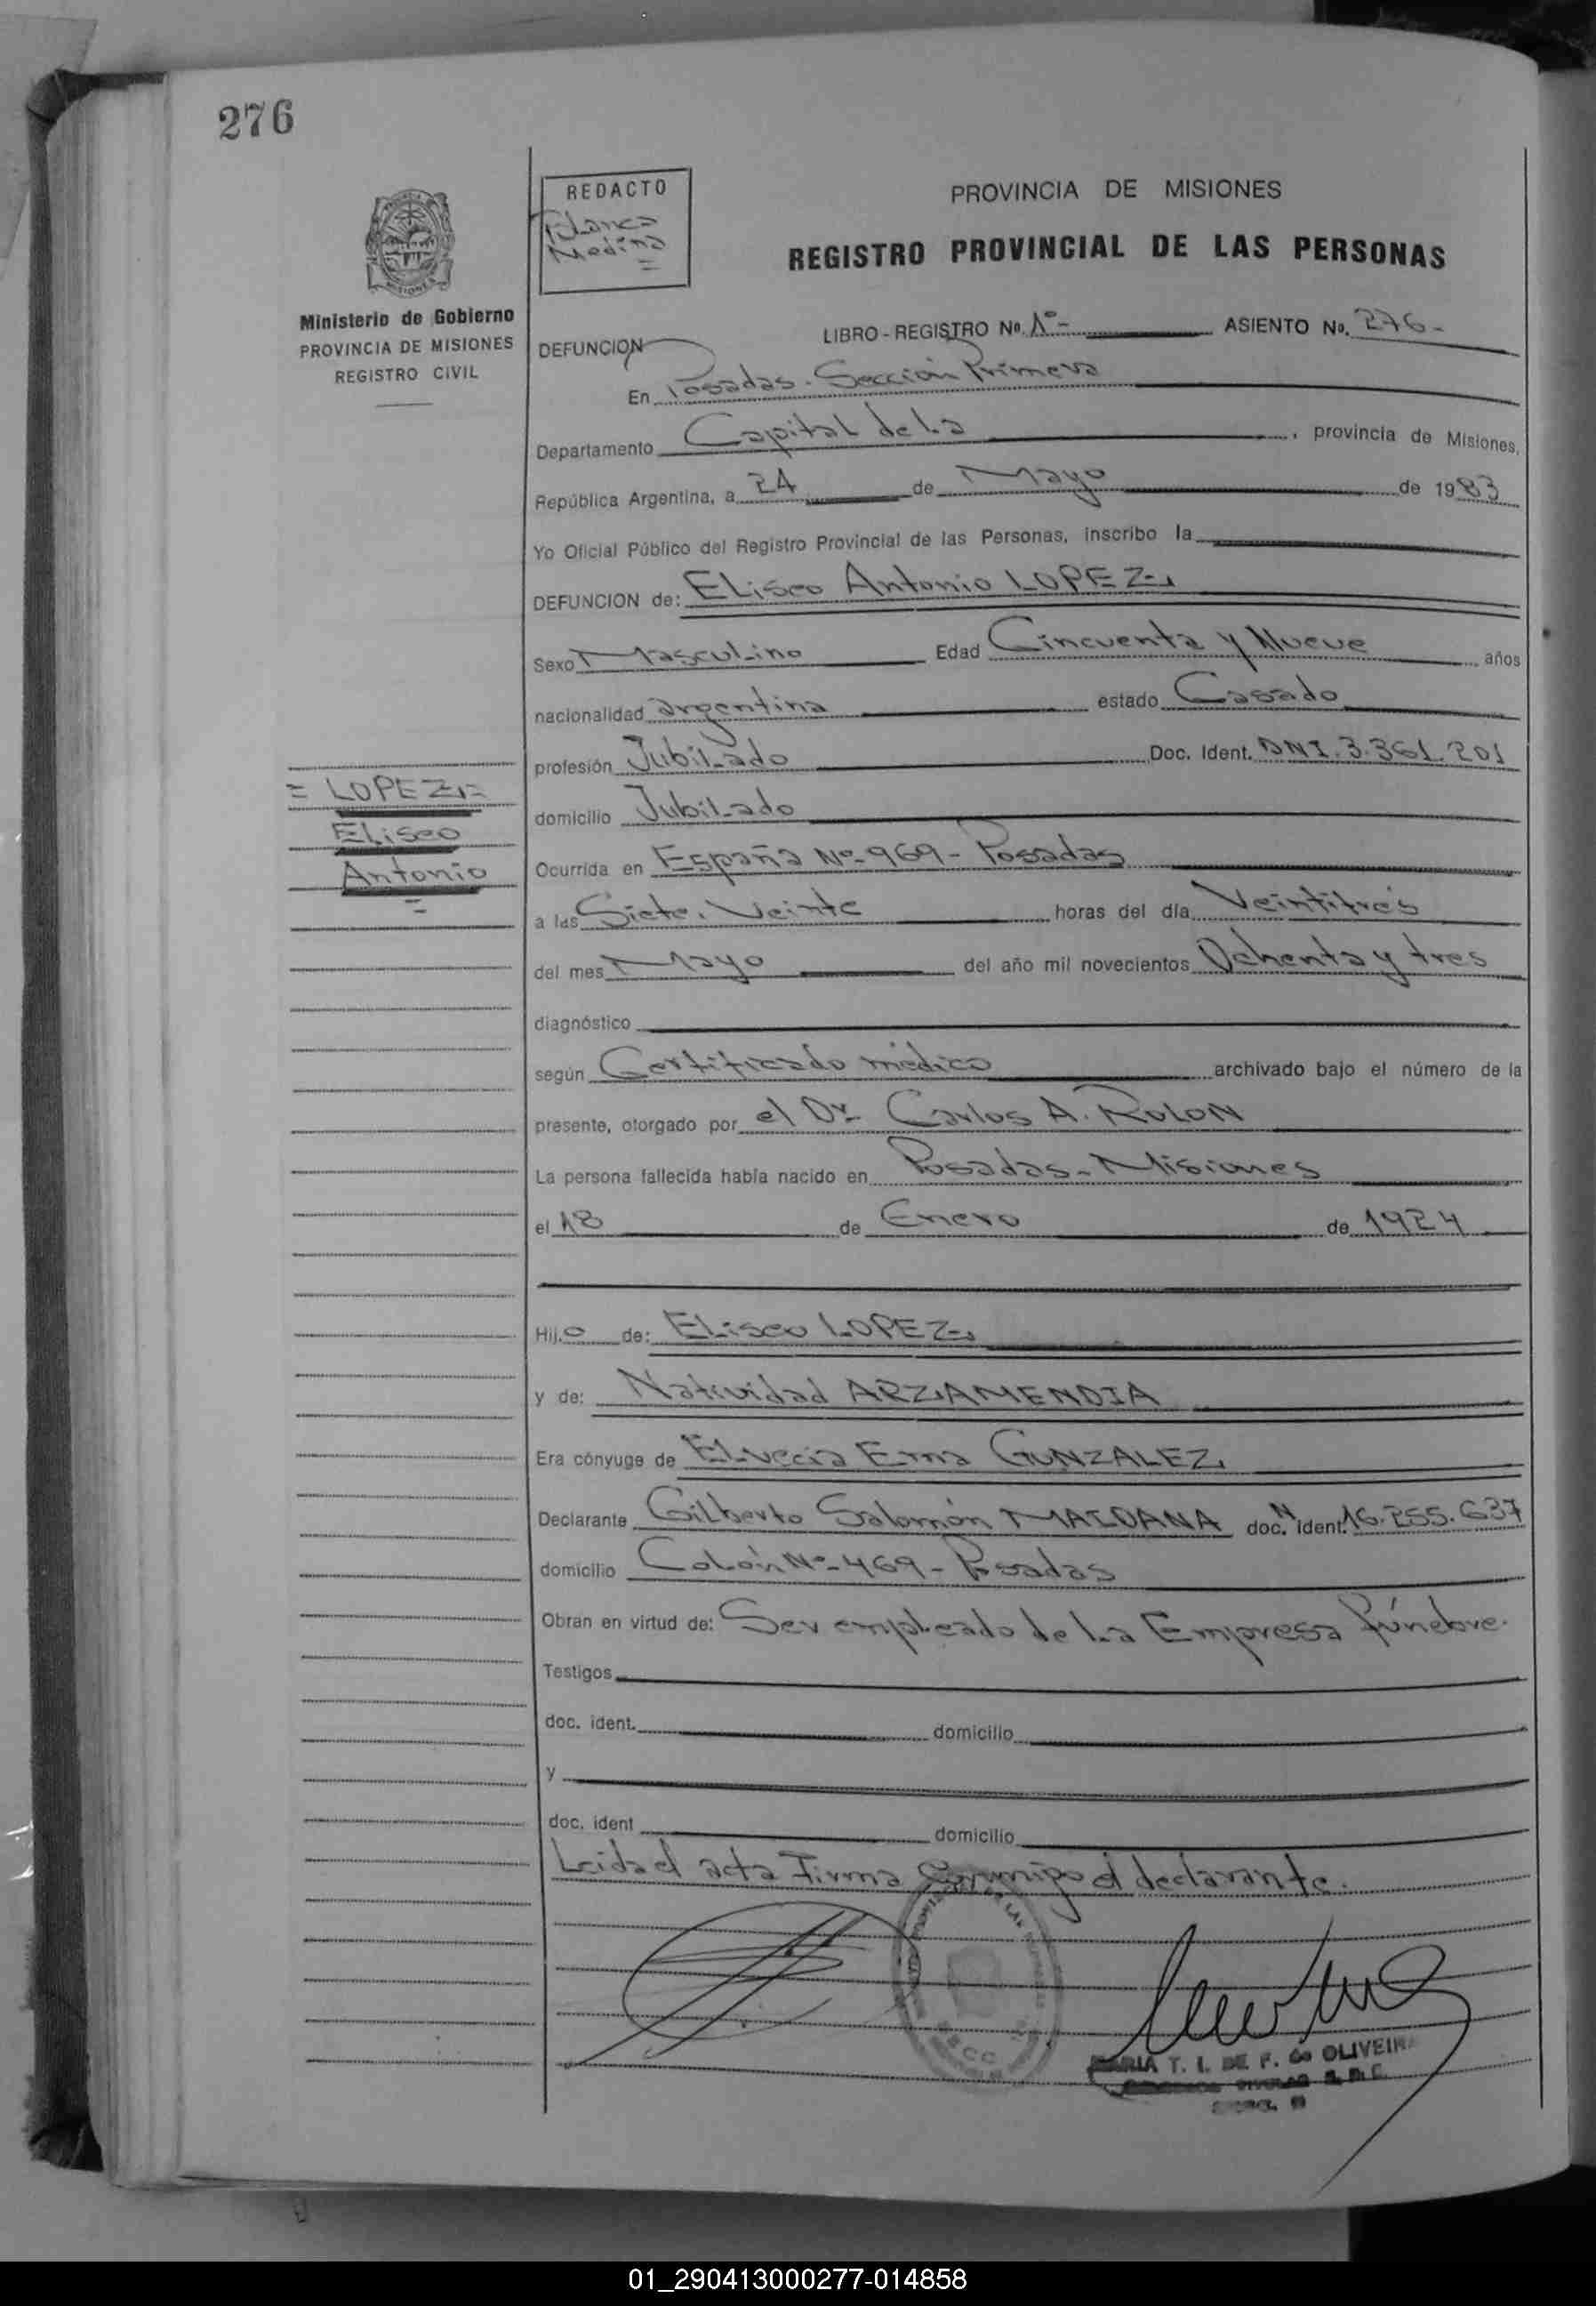 276
REDACTO
Blanca
Medina
PROVINCIA DE MISIONES
REGISTRO PROVINCIAL DE LAS PERSONAS
MISIONES
Ministerio de Gobierno
PROVINCIA DE MISIONES
REGISTRO CIVIL
LIBRO - REGISTRO No. 1º- ASIENTO No. 276-
DEFUNCION
En Posadas. Sección Primera
Departamento Capital de La , provincia de Misiones,
República Argentina, a 24 de Mayo de 1983
Yo Oficial Público del Registro Provincial de las Personas, inscribo la
DEFUNCION de: Eliseo Antonio LOPEZ
Sexo Masculino Edad Cincuenta y Nueve años
nacionalidad argentina estado Casado
profesión Jubilado Doc. Ident. DNI. 3.361.201
domicilio Jubilado
Ocurrida en España Nº 969 - Posadas
a las Siete, Veinte horas del día Veintitrés
del mes Mayo del año mil novecientos Ochenta y tres
diagnóstico
según Certificado médico archivado bajo el número de la
presente, otorgado por el Dr. Carlos A. ROLON
La persona fallecida había nacido en Posadas - Misiones
el 18 de Enero de 1924
Hijo de: Eliseo LOPEZ
y de: Natividad ARZAMENDIA
Era cónyuge de Elvecia Ema GONZALEZ
Declarante Gilberto Salomón MAIDANA doc. N ident. 16.255.637
domicilio Colón Nº 469 - Posadas
Obran en virtud de: Ser empleado de la Empresa fúnebre.
Testigos
doc. ident. domicilio
y
doc. ident domicilio
Leida el acta Firma Conmigo el declarante.
= LOPEZ =
Eliseo
Antonio
=
MARIA T. I. DE F. de OLIVEIRA
01_290413000277-014858